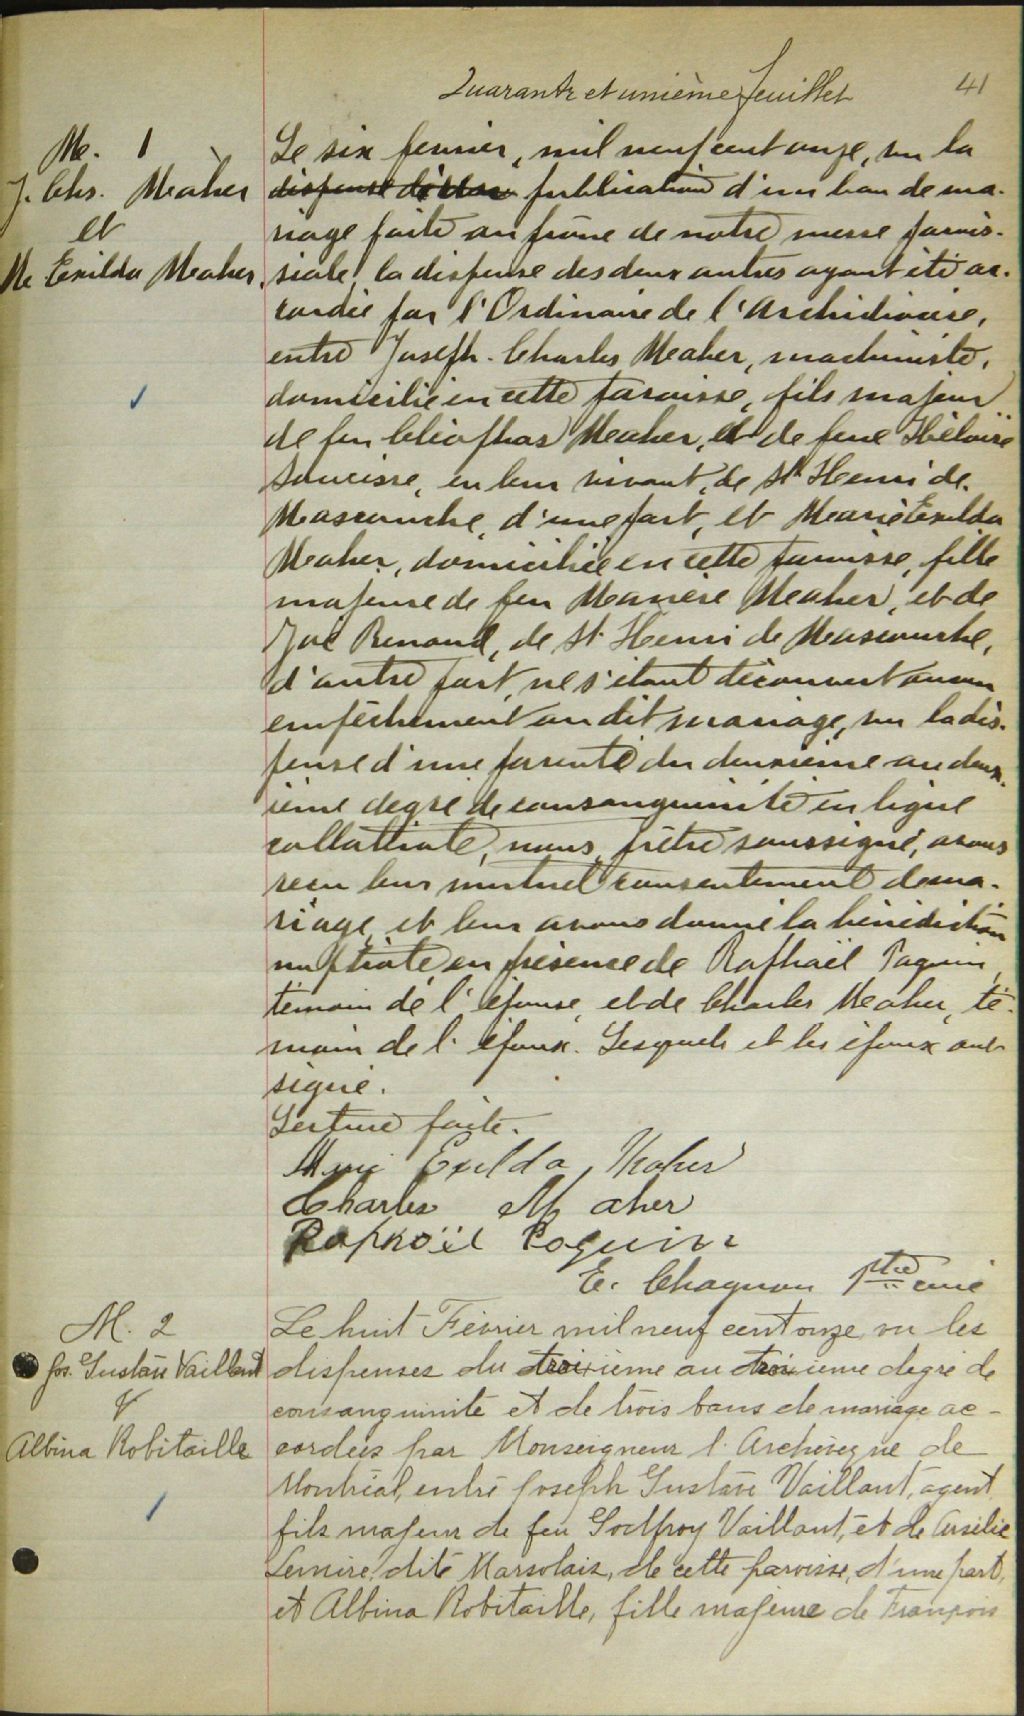 Quarante et unième feuillet 41
M. 1
J. Chs. Meaher
et
M. Exilda Meaher.
Le six fevrier, mil neuf cent onze, vu la
publication d'un ban de ma-
riage faite au prône de notre messe parois-
siale, la dispense des deux autres ayant été ac-
cordée par l'Ordinaire de l'Archidiocèse,
entre Joseph-Charles Meaher, machiniste,
domicilié en cette paroisse, fils majeur
de feu Cléophas Meaher, et de feue Héloïse
Saucisse, en leur vivant, de St Henri de
Mascouche, d'une part, et Marie Exilda
Meaher, domiciliée en cette paroisse, fille
majeure de feu Meaher, et de
Zoé Renaud, de St Henri de Mascouche,
d'autre part, ne s'étant découvert aucun
empêchement au dit mariage, vu la dis-
pense d'une parenté du deuxième au deux-
ième degré de consanguinité en ligne
collatérale, nous, prêtre soussigné, avons
reçu leur mutuel consentement de ma-
riage, et leur avons donné la bénédiction
nuptiale, en présence de Raphaël Paquin,
témoin de l'épouse, et de Charles Meaher, té-
moin de l'époux. Lesquels et les époux ont
signé.
Lecture faite.
Marie Exilda Maher
Charles Maher
Raphaël Paquin
E. Chagnon Ptre curé
M. 2
Jos. Gustave Vaillant
&
Albina Robitaille
Le huit Février mil neuf cent onze, vu les
dispenses du troisième au troisième degré de
consanguinité et de trois bans de mariage ac-
cordées par Monseigneur l'Archevêque de
Montréal, entre Joseph Gustave Vaillant, agent,
fils majeur de feu Godfroy Vaillant, et de Aurélie
Lemire, dite Marsolais, de cette paroisse, d'une part,
et Albina Robitaille, fille majeure de François